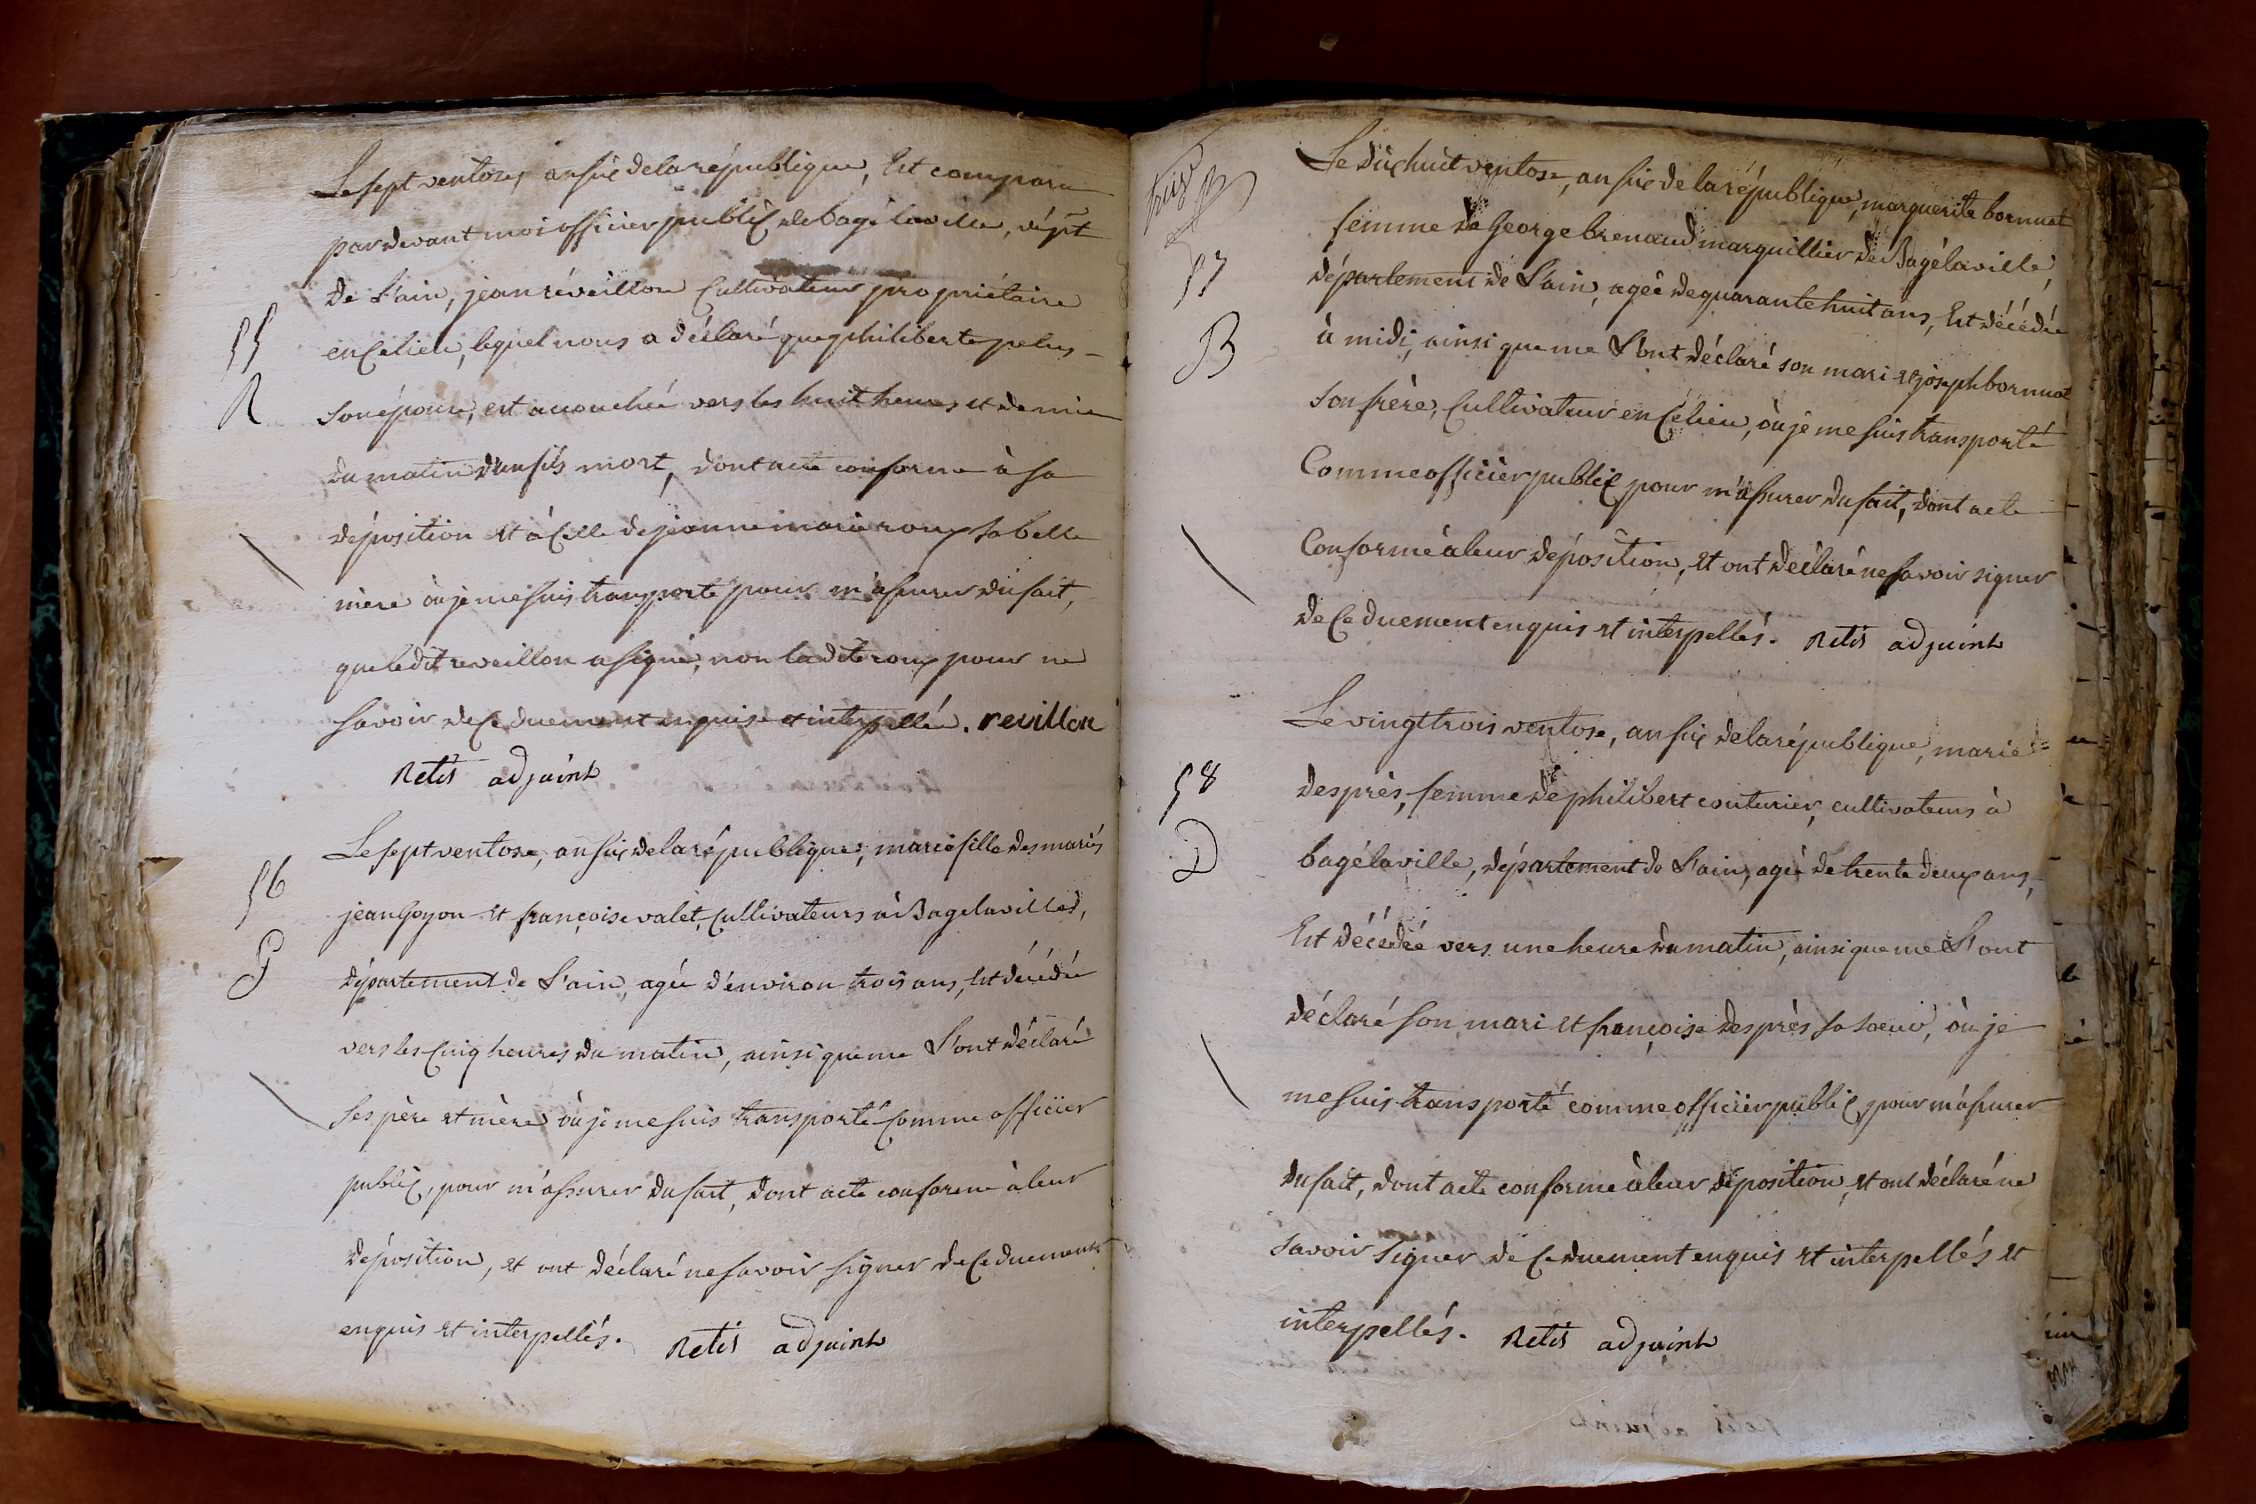 Le sept ventose, an six de la république, Est comparu
pardevant moi officier public de bagé laville, dépt
de l'ain, jean réveillon Cultivateur propriétaire
en Ce lieu, lequel nous a déclaré que philiberte pelus
55
son épouse, est accouchée vers les huit heures et demie
R
du matin d'un fils mort, dont acte conforme à sa
déposition et à Celle de jeanne marie roux sa belle
mère où je me suis transporté pour m'assurer du fait,
que ledit reveillon a signé, non ladite roux pour ne
savoir de Ce duement enquise et interpellée. revillon
Retis adjoint
Le sept ventose, an six de la république, marie fille des mariés
56
jean Goyon et françoise valet, Cultivateurs à Bagelaville,
G
département de l'ain, agée d'environ trois ans, Est décédée
vers les Cinq heures du matin, ainsi que me l'ont déclaré
ses père et mère où je me suis transporté Comme officier
public, pour m'assurer du fait, dont acte conforme à leur
déposition, et ont déclaré ne savoir signer de Ce duement
enquis et interpellés. Retis adjoint
Le dix huit ventose, an six de la république, marguerite bornuat
femme de George brenaud marguillier de Bagélaville,
57
département de l'ain, agée de quarante huit ans, Est décédée
B
à midi, ainsi que me l'ont déclaré son mari et joseph bornuat
son frère, Cultivateur en Ce lieu, où je me suis transporté
Comme officier public pour m'assurer du fait, dont acte
Conforme à leur déposition, et ont déclaré ne savoir signer
de Ce duement enquis et interpellés. Retis adjoint
Le vingt trois ventose, an six de la république, marie
58
desprès, femme de philibert couturier, cultivateurs à
D
bagélaville, département de l'ain, agée de trente deux ans,
Est décédée vers une heure du matin, ainsi que me l'ont
déclaré son mari et françoise desprès sa soeur, où je
me suis transporté comme officier public pour m'assurer
du fait, dont acte conforme à leur déposition, et ont déclaré ne
savoir signer de Ce duement enquis et interpellés et
interpellés. Retis adjoint